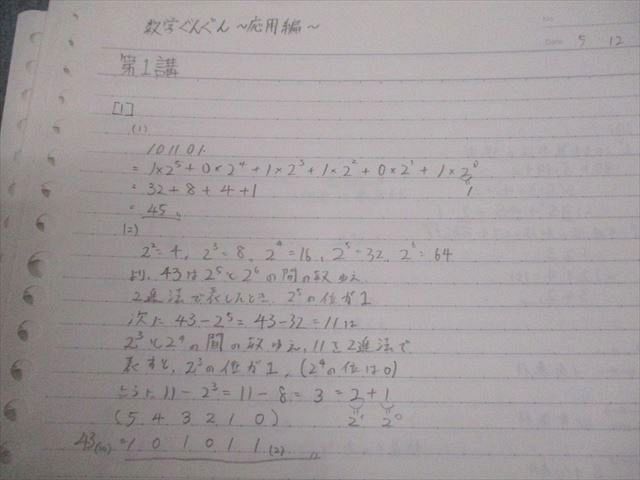 数学ぐんぐん ~応用編~
No
Date 5 12
第1講
[1]
(1)
101101
= 1×2⁵+0×2⁴+1×2³+1×2²+0×2¹+1×2⁰
= 32+8+4+1
1
= 45
(2)
2²=4, 2³=8, 2⁴=16, 2⁵=32, 2⁶=64
より, 43は2⁵と2⁶の間の数ゆえ
2進法で表したとき, 2⁵の位が1
次に 43-2⁵=43-32=11は
2³と2⁴の間の数ゆえ, 11を2進法で
表すと, 2³の位が1, (2⁴の位は0)
さらに 11-2³=11-8=3=2+1
(5 4 3 2 1 0) 2¹ 2⁰
43(10)=1 0 1 0 1 1 (2)